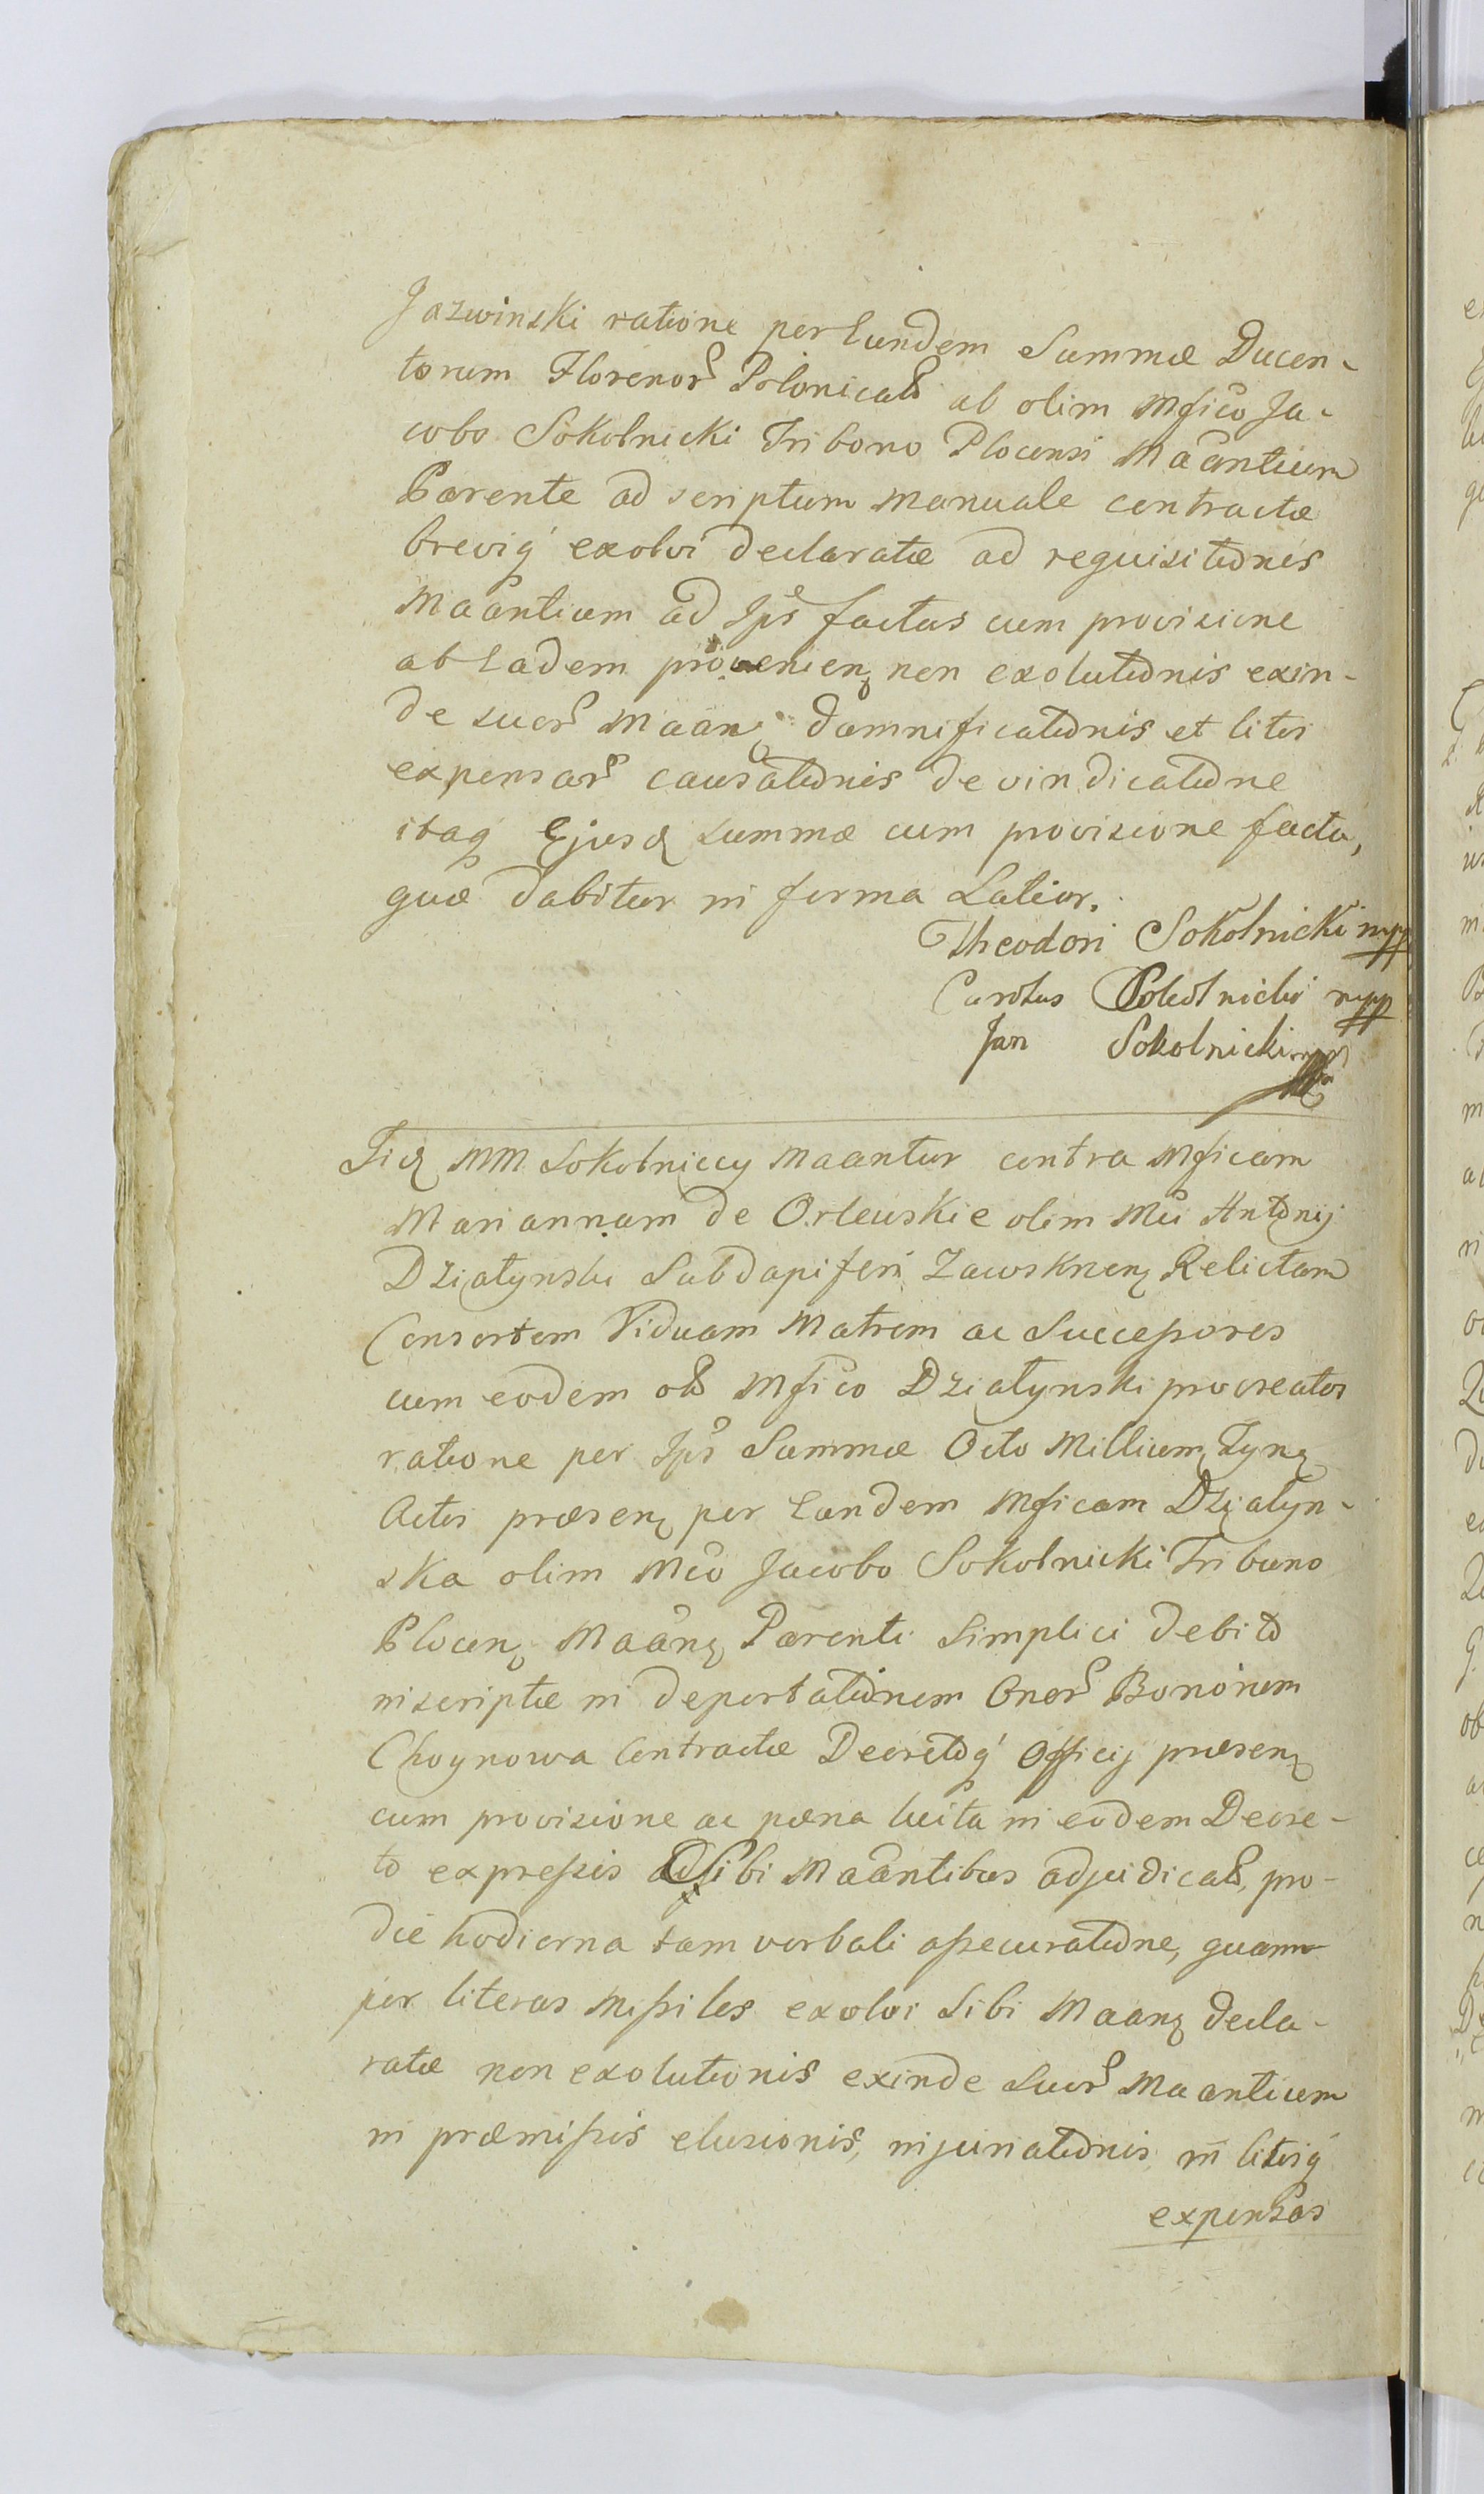 Jazwinski ratione per Eundem Summæ Ducen-
torum Florenor Polonical ab olim Mfico Ja-
cobo Sokolnicki Tribono Plocensi Maantium
Parente ad scriptum manuale contractæ
brevig exolvi declaratæ ad requisitionis
Maantium ad Ips factas cum provisione
ab Eadem provenien non exolutionis exin-
de suor Maan damnificationis et litis
expensar causationis de vindicatione
itaq Ejusd summæ cum provisione facta,
quæ dabitur in forma Latior.
Theodori Sokolnicki mpp
Carolus Sokolnicki mpp
Jan Sokolnicki mpp
Iid MM Sokolniccy Maantur contra Mficam
Mariannam de Orleuskie olim Mci Antonij
Działynski Subdapiferi Zawsknen Relictam
Consortem Viduam Matrem ac Successores
cum eodem ol Mfico Działynski procreatos
ratione per Ips Summæ Octo Millium Tyn
Actis præsen per Eandem Mficam Działyn-
ska olim Mco Jacobo Sokolnicki Tribuno
Plocen Maan Parenti Simplici debito
inscriptæ in deportationem Oner Bonorum
Choynowa Contractæ Decretoq Officij præsen
cum provisione ac pæna lucita in eodem Decre-
to expressis sibi Maantibus adjudical, pro
die hodierna tam verbali assecuratione, quam
per literas missiles exolvi Sibi Maan decla-
ratæ non exolutionis exinde Suor Maantium
in præmissis elusionis, injuriationis in litisq
expensas